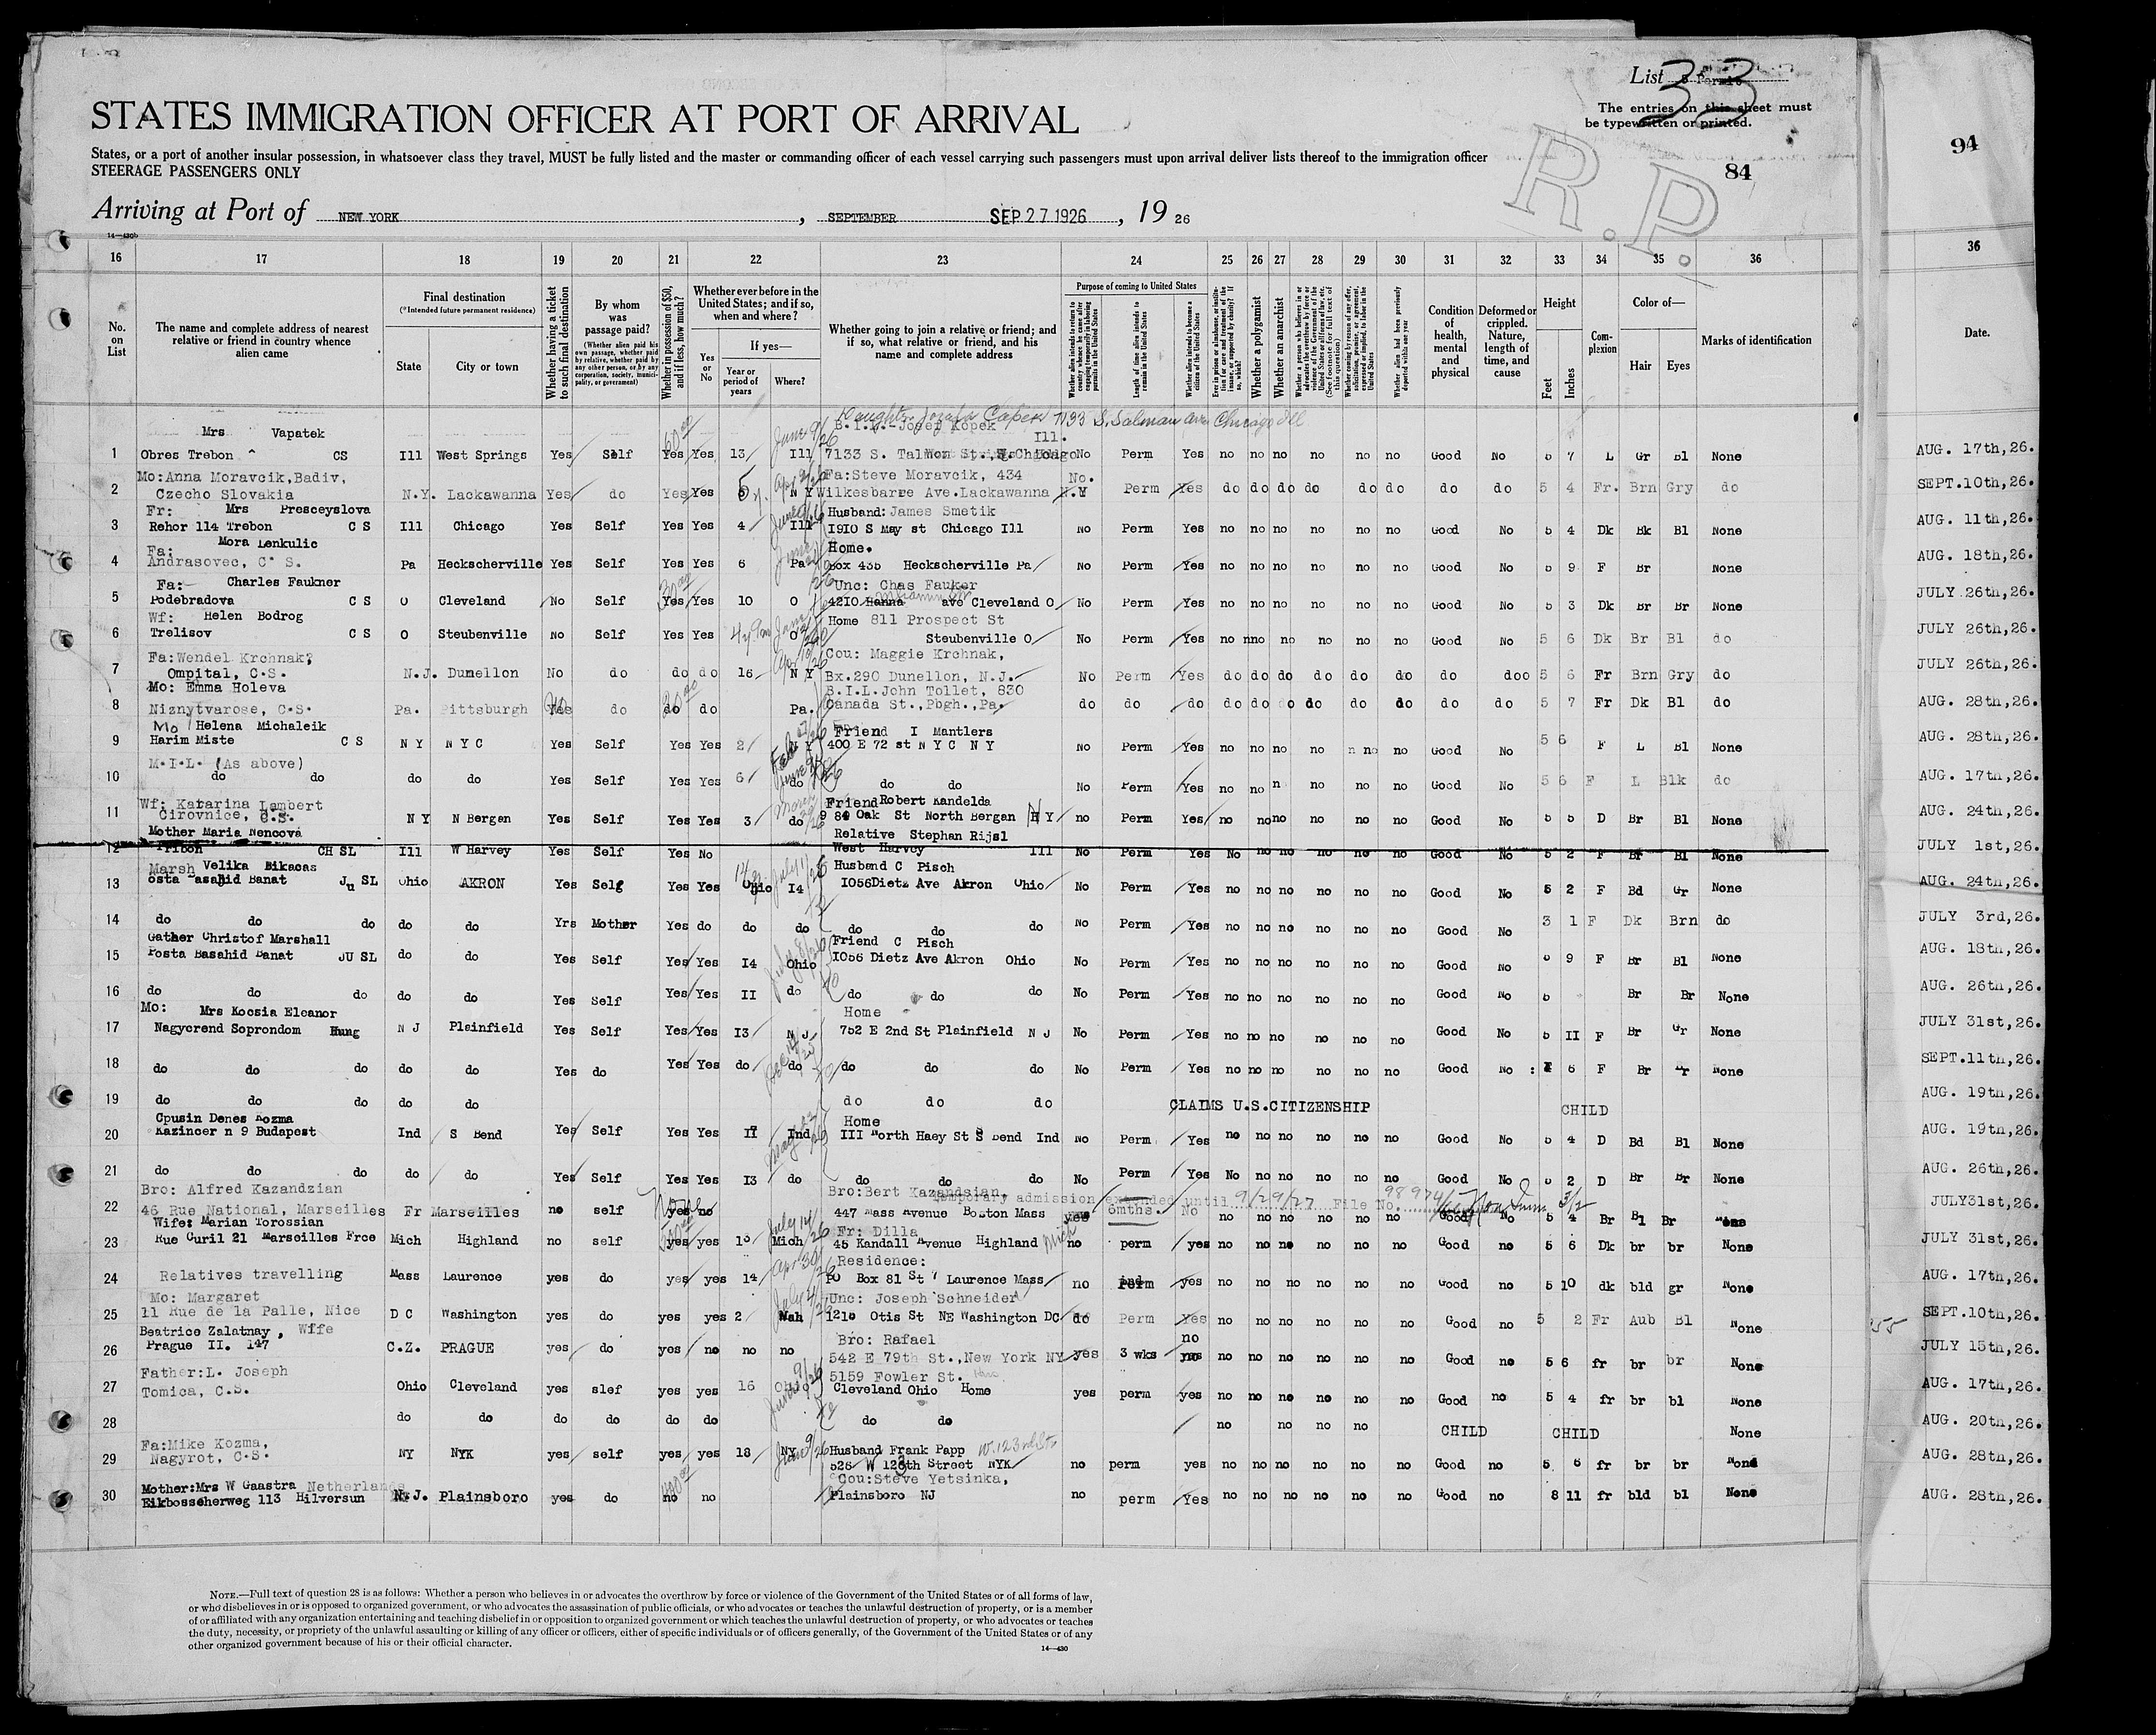 List 33
The entries on this sheet must
be typewritten or printed.
STATES IMMIGRATION OFFICER AT PORT OF ARRIVAL
States, or a port of another insular possession, in whatsoever class they travel, MUST be fully listed and the master or commanding officer of each vessel carrying such passengers must upon arrival deliver lists thereof to the immigration officer
STEERAGE PASSENGERS ONLY
R.P.
84
94
Arriving at Port of NEW YORK, SEPTEMBER SEP 27 1926, 19 26
14—430b
16 17 18 19 20 21 22 23 24 25 26 27 28 29 30 31 32 33 34 35 36 36
No. on List
The name and complete address of nearest relative or friend in country whence alien came
Final destination
(*Intended future permanent residence)
State
City or town
Whether having a ticket to such final destination
By whom was passage paid?
(Whether alien paid his own passage, whether paid by relative, whether paid by any other person, or by any corporation, society, municipality, or government)
Whether in possession of $50, and if less, how much?
Whether ever before in the United States; and if so, when and where?
Yes or No
If yes—
Year or period of years
Where?
Whether going to join a relative or friend; and if so, what relative or friend, and his name and complete address
Purpose of coming to United States
Whether alien intends to return to country whence he came after engaging temporarily in laboring pursuits in the United States
Length of time alien intends to remain in the United States
Whether alien intends to become a citizen of the United States
Ever in prison or almshouse, or institution for care and treatment of the insane, or supported by charity? If so, which?
Whether a polygamist
Whether an anarchist
Whether a person who believes in or advocates the overthrow by force or violence of the Government of the United States or all forms of law, etc. (See footnote for full text of this question)
Whether coming by reason of any offer, solicitation, promise, or agreement, expressed or implied, to labor in the United States
Whether alien had been previously deported within one year
Condition of health, mental and physical
Deformed or crippled. Nature, length of time, and cause
Height
Feet
Inches
Complexion
Color of—
Hair
Eyes
Marks of identification
Date.
Daughter Jozafa Capek 7133 S. Salman ave Chicago Ill
Mrs Vapatek B.I.L.-Josef Kopek Ill.
1 Obres Trebon CS Ill West Springs Yes Self Yes Yes 13 Ill 7133 S. Talmon St., Chicago No Perm Yes no no no no no no Good No 5 7 L Gr Bl None AUG. 17th,26.
Mo:Anna Moravcik,Badiv, Fa:Steve Moravcik, 434 No.
2 Czecho Slovakia N.Y. Lackawanna Yes do Yes Yes N Y Wilkesbarre Ave.Lackawanna N.Y Perm Yes do do do do do do do do 5 4 Fr. Brn Gry do SEPT.10th,26.
Fr: Mrs Presceyslova Husband: James Smetik
3 Rehor 114 Trebon C S Ill Chicago Yes Self Yes Yes 4 Ill 1910 S May st Chicago Ill No Perm Yes no no no no no no Good No 5 4 Dk Bk Bl None AUG. 11th,26.
Fa: Mora Lenkulic Home.
4 Andrasovec, C S. Pa Heckscherville Yes Self Yes Yes 6 Pa Box 435 Heckscherville Pa No Perm Yes no no no no no no Good No 5 9 F Br None AUG. 18th,26.
Fa: Charles Faukner Unc: Chas Fauker
5 Podebradova C S O Cleveland No Self Yes Yes 10 O 4210 Hanna ave Cleveland O No Perm Yes no no no no no no Good No 5 3 Dk Br Br None JULY 26th,26.
Wf: Helen Bodrog Home 811 Prospect St
6 Trelisov C S O Steubenville No Self Yes Yes O Steubenville O No Perm Yes no nno no no no no Good No 5 6 Dk Br Bl do JULY 26th,26.
Fa:Wendel Krchnak? Cou: Maggie Krchnak,
7 Ompital, C.S. N.J. Dunellon No do do do 16 N Y Bx.290 Dunellon, N.J. No Perm Yes do do do do do do do doo 5 6 Fr Brn Gry do JULY 26th,26.
Mo: Emma Holeva B.I.L.John Tollet, 830
8 Niznytvarose, C.S. Pa. Pittsburgh Yes do do do Pa. Canada St.,Pbgh.,Pa. do do do do do do do do do do do 5 7 Fr Dk Bl do AUG. 28th,26.
Mo Helena Michaleik Friend I Mantlers
9 Harim Miste C S N Y N Y C Yes Self Yes Yes 2 N Y 400 E 72 st N Y C N Y No Perm Yes no no no no n no no Good No 5 6 F L Bl None AUG. 28th,26.
M.I.L. (As above)
10 do do do do Yes Self Yes Yes 6 do do do No Perm Yes no no n no no no Good No 5 6 F L Blk do AUG. 17th,26.
Wf: Katarina Lambert Friend Robert Kandelda
11 Cirovnice, C.S. N Y N Bergen Yes Self Yes Yes 3 do 9 84 Oak St North Bergen N Y no Perm Yes no no no no no no Good No 5 5 D Br Bl None AUG. 24th,26.
Mother Maria Nencova Relative Stephan Rijsl
12 Tribon CH SL Ill W Harvey Yes Self Yes No West Harvey Ill No Perm Yes No no no no no no Good No 5 2 F Br Bl None JULY 1st,26.
Marsh Velika Bikacas Husband C Pisch
13 osta Basahid Banat Ju SL Ohio AKRON Yes Selg Yes Yes Ohio I4 1056Dietz Ave Akron Ohio No Perm Yes no no no no no no Good No 5 2 F Bd Gr None AUG. 24th,26.
14 do do do do do Yrs Mother Yes do do do do do do No Perm Yes no no no no no no Good No 3 1 F Dk Brn do JULY 3rd,26.
Gather Christof Marshall Friend C Pisch
15 Posta Basahid Banat JU SL do do Yes Self Yes Yes I4 Ohio 1056 Dietz Ave Akron Ohio No Perm Yes no no no no no no Good No 5 9 F Br Bl None AUG. 18th,26.
16 do do do do do Yes Self Yes Yes II do do do do No Perm Yes no no no no no no Good No 5 Br Br None AUG. 26th,26.
Mo: Mrs Kocsia Eleanor Home
17 Nagycrend Soprondom Hung N J Plainfield Yes Self Yes Yes I3 N J 752 E 2nd St Plainfield N J No Perm Yes no no no no no no Good No 5 II F Br Gr None JULY 31st,26.
18 do do do do do Yes do Yes Yes do do do do do No Perm Yes no no no no no no Good No : 6 F Br None SEPT.11th,26.
19 do do do do do do do do CLAIMS U.S.CITIZENSHIP CHILD AUG. 19th,26.
Cpusin Denes Kozma Home
20 Kazincer n 9 Budapest Ind S Bend Yes Self Yes Yes Ind III North Haey St S Bend Ind No Perm Yes no no no no no no Good No 5 4 D Bd Bl None AUG. 19th,26.
21 do do do do do Yes Self Yes Yes I3 do do do do No Perm Yes No no no no no no Good No 5 2 D Br Br None AUG. 26th,26.
Bro: Alfred Kazandzian None Bro:Bert Kazandsian, Temporary admission extended until 9/29/27 File No. 98974
22 46 Rue National, Marseilles Fr Marseilles no self yes no 447 Mass Avenue Boston Mass yes 6mths. No no no no no no no Good No 5 4 Br Bl Br None JULY31st,26.
Wife: Marian Torossian Fr: Dilla
23 Rue Curil 21 Marseilles Frce Mich Highland no self yes yes Mich 45 Kandall Avenue Highland Mich no perm yes no no no no no no Good no 5 6 Dk br br None JULY 31st,26.
Residence:
24 Relatives travelling Mass Laurence yes do yes yes 14 PO Box 81 St Laurence Mass no yes no no no no no no Good no 5 10 dk bld gr None AUG. 17th,26.
Mo: Margaret Unc: Joseph Schneider
25 11 Rue de la Palle, Nice D C Washington yes do yes yes 2 Wah 1210 Otis St NE Washington DC do Perm Yes no no no no no no Good no 5 2 Fr Aub Bl None SEPT.10th,26.
Beatrice Zalatnay, Wife Bro: Rafael no
26 Prague II. 147 C.Z. PRAGUE yes do yes no no no 542 E 79th St.,New York NY yes 3 wks no no no no no no Good no 5 6 fr br br None JULY 15th,26.
Father:L. Joseph 5159 Fowler St.
27 Tomica, C.S. Ohio Cleveland yes slef yes yes 16 Cleveland Ohio Home yes perm yes no no no no no no Good no 5 4 fr br bl None AUG. 17th,26.
28 do do do do do do do do no no no no CHILD CHILD None AUG. 20th,26.
Fa:Mike Kozma, Husband Frank Papp W.123rd St
29 Nagyrot, C.S. NY NYK yes self yes yes 18 NY 526 W 123th Street NYK no perm yes no no no no no no Good no 5 6 fr br br None AUG. 28th,26.
Mother:Mrs W Gaastra Netherlands Cou:Steve Yetsinka,
30 Eikbosscherweg 113 Hilversun N.J. Plainsboro yes do no no Plainsboro NJ no perm Yes no no no no no no Good no 5 11 fr bld bl None AUG. 28th,26.
NOTE.—Full text of question 28 is as follows: Whether a person who believes in or advocates the overthrow by force or violence of the Government of the United States or of all forms of law,
or who disbelieves in or is opposed to organized government, or who advocates the assassination of public officials, or who advocates or teaches the unlawful destruction of property, or is a member
of or affiliated with any organization entertaining and teaching disbelief in or opposition to organized government or which teaches the unlawful destruction of property, or who advocates or teaches
the duty, necessity, or propriety of the unlawful assaulting or killing of any officer or officers, either of specific individuals or of officers generally, of the Government of the United States or of any
other organized government because of his or their official character.
14—430